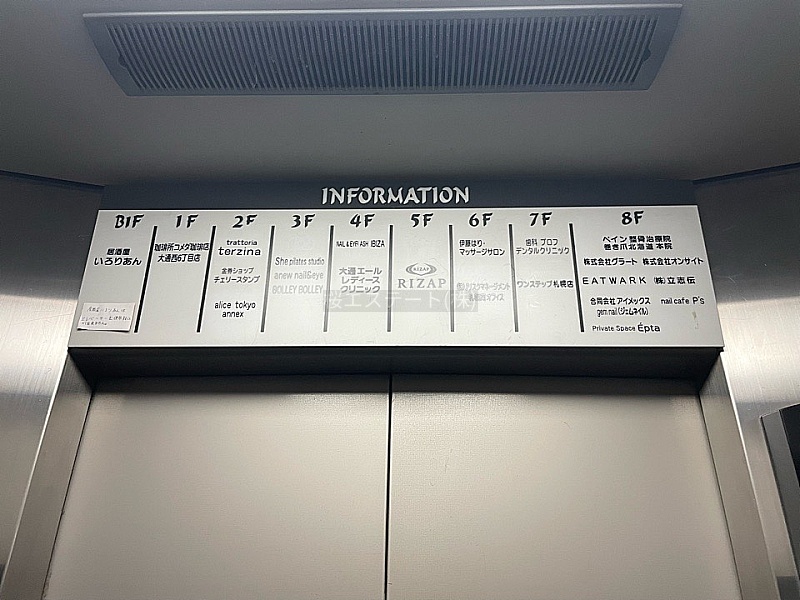 INFORMATION
B1F
居酒屋
いろりあん
1F
珈琲所コメダ珈琲店
大通西6丁目店
2F
trattoria
terzina
金券ショップ
チェリースタンプ
alice tokyo
annex
3F
She pilates studio
anew nail&eye
BOLLEY BOLLEY
4F
NAIL & EYELASH IBIZA
大通エール
レディース
クリニック
5F
RIZAP
RIZAP
6F
伊藤はり・
マッサージサロン
7F
歯科 プロフ
デンタルクリニック
ワンステップ札幌店
8F
ペイン整骨治療院
巻き爪北海道 本院
株式会社グラート 株式会社オンサイト
EATWARK (株)立志伝
合同会社アイメックス
gem nail(ジェムネイル)
nail cafe P's
Private Space Épta
桜エステート(株)